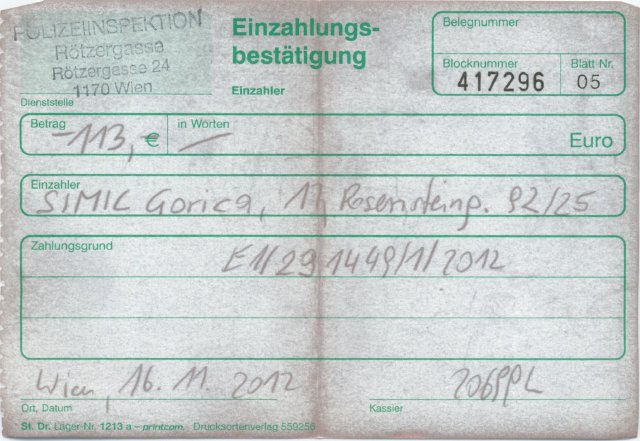 POLIZEIINSPEKTION
Rötzergasse
Rötzergasse 24
1170 Wien
Dienststelle
Einzahlungs-
bestätigung
Einzahler
Belegnummer
Blocknummer Blatt Nr.
417296 05
Betrag in Worten
-113,- € Euro
Einzahler
SIMIC Gorica, 17, Rosensteing. 92/25
Zahlungsgrund
E1/291449/1/2012
Wien, 16. 11. 2012
Ort, Datum Kassier
St. Dr. Lager-Nr. 1213 a – printcom. Drucksortenverlag 559256